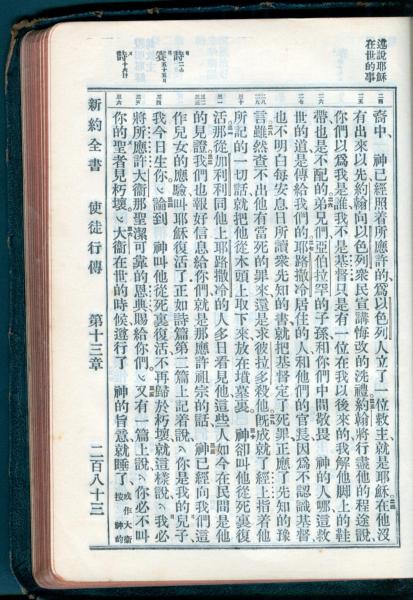 述說耶穌
在世的事
裔中、神已經照着所應許的爲以色列人立了一位救主就是耶穌在他沒
有出來以先約翰向以色列衆民宣講悔改的洗禮約翰將行盡他的程途說
你們以爲我是誰我不是基督只是有一位在我以後來的我解他脚上的鞋
帶也是不配的弟兄們亞伯拉罕的子孫和你們中間敬畏 神的人哪這救
世的道是傳給我們的耶路撒冷居住的人和他們的官長因爲不認識基督
也不明白每安息日所讀衆先知的書就把基督定了死罪正應了先知的預
言雖然查不出他有當死的罪來還是求彼拉多殺他旣成就了經上指着他
所記的一切話就把他從木頭上取下來放在墳墓裏 神卻叫他從死裏復
活那從加利利同他上耶路撒冷的人多日看見他這些人如今在民間是他
的見證我們也報好信息給你們就是那應許祖宗的話 神已經向我們這
作兒女的應驗叫耶穌復活了正如詩篇第二篇上記着說你是我的兒子
我今日生你論到 神叫他從死裏復活不再歸於朽壞就這樣說我必
將所應許大衞那聖潔可靠的恩典賜給你們又有一篇上說你必不叫
你的聖者見朽壞大衞在世的時候遵行了 神的旨意就睡了
或作大衞
按神的
新約全書 使徒行傳 第十三章 二百八十三